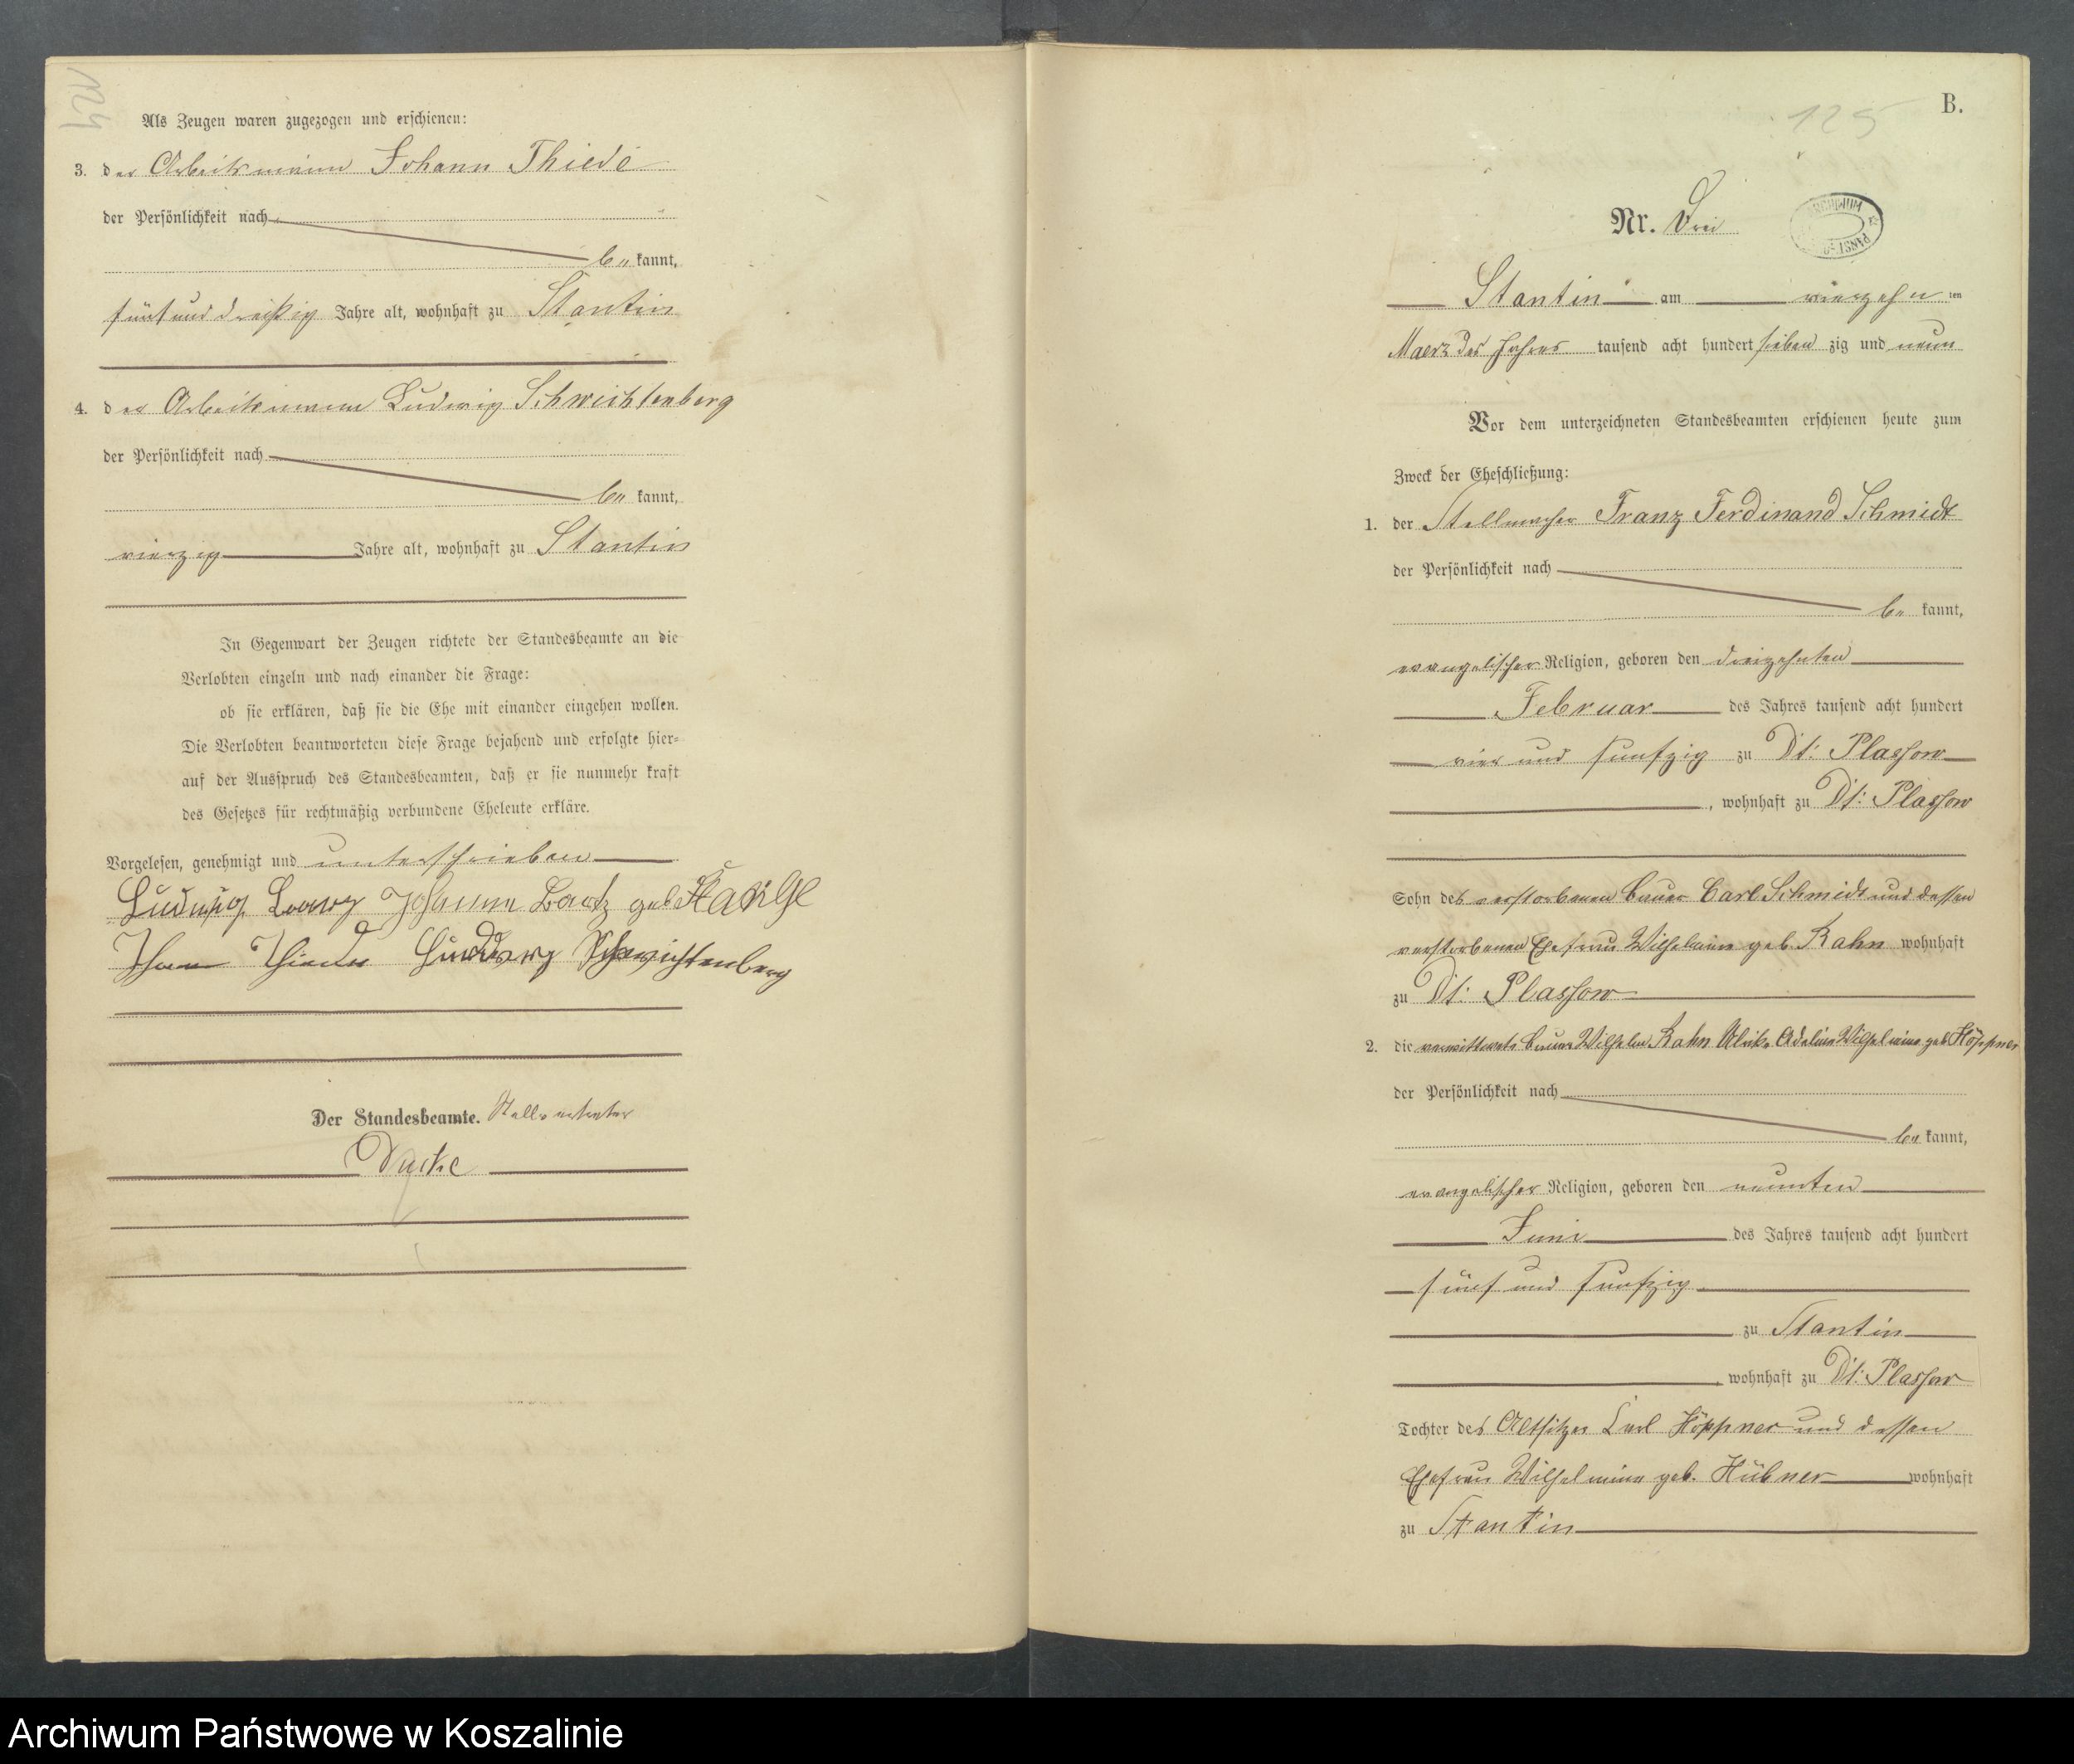 124
Als Zeugen waren zugezogen und erschienen:
3. der Arbeitsmann Johann Thiede
der Persönlichkeit nach
be kannt,
fünf und dreißig Jahre alt, wohnhaft zu Stantin
4. der Arbeitsmann Ludwig Schwichtenberg
der Persönlichkeit nach
be kannt,
vierzig Jahre alt, wohnhaft zu Stantin
In Gegenwart der Zeugen richtete der Standesbeamte an die
Verlobten einzeln und nach einander die Frage:
ob sie erklären, daß sie die Ehe mit einander eingehen wollen.
Die Verlobten beantworteten diese Frage bejahend und erfolgte hier=
auf der Ausspruch des Standesbeamten, daß er sie nunmehr kraft
des Gesetzes für rechtmäßig verbundene Eheleute erkläre.
Vorgelesen, genehmigt und unterschrieben
Ludwig Johann geb.
Thiede Ludwig Schwichtenberg
Der Standesbeamte. Stellvertreter
B.
125
Nr. Drei
ARCHIWUM
Stantin am vierzehn ten
Maerz des Jahres tausend acht hundert sieben zig und neun
Vor dem unterzeichneten Standesbeamten erschienen heute zum
Zweck der Eheschließung:
1. der Stellmacher Franz Ferdinand Schmidt
der Persönlichkeit nach
be kannt,
evangelischer Religion, geboren den dreizehnten
Februar des Jahres tausend acht hundert
vier und funfzig zu Dt: Plassow
, wohnhaft zu Dt: Plassow
Sohn des verstorbenen Bauer Carl Schmidt und dessen
verstorbenen Ehefrau Wilhelmine geb. Rahn wohnhaft
zu Dt: Plassow
2. die verwittwete Bauer Wilhelm Rahn Ulrike Adeline Wilhelmine geb. Höppner
der Persönlichkeit nach
be kannt,
evangelischer Religion, geboren den neunten
Juni des Jahres tausend acht hundert
fünf und funfzig
zu Stantin
, wohnhaft zu Dt: Plassow
Tochter des Altsitzer Carl Höppner und dessen
Ehefrau Wilhelmine geb. Hübner wohnhaft
zu Stantin
Archiwum Państwowe w Koszalinie